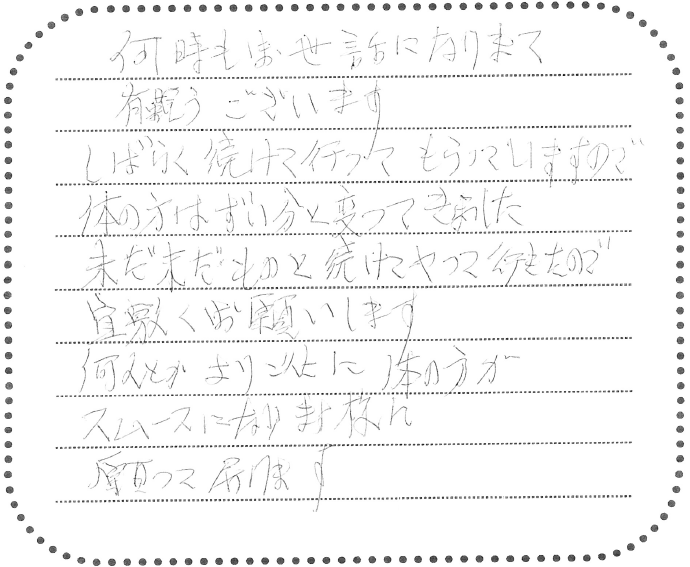 何時もお世話になりまして
有難うございます
しばらく続けて行って もらっていますので
体の方はずい分と変ってきました
未だ未だ と続けてやって行きたので
宜敷くお願いします
何 か より に 体の方が
スムースになります様に
願って居ります